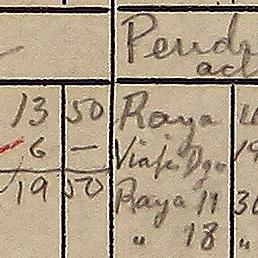 Pendr
ad
13 50 Raya
6 — Viaje Dgo 19
19 50 Raya 11 30
" 18 "